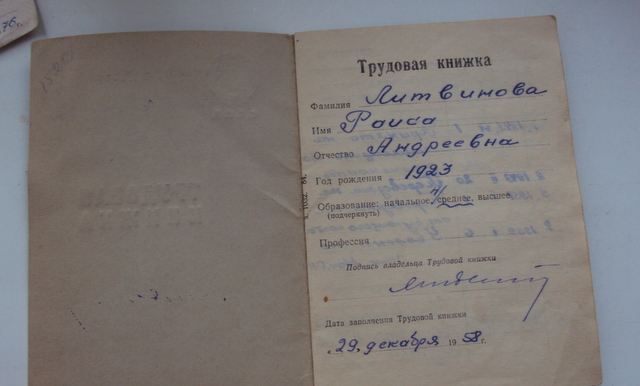 76 г.
Трудовая книжка
Фамилия Литвинова
Имя Раиса
Отчество Андреевна
Год рождения 1923
Образование: начальное, н/среднее, высшее
(подчеркнуть)
Профессия
Подпись владельца Трудовой книжки
Дата заполнения Трудовой книжки
29 декабря 1958 г.